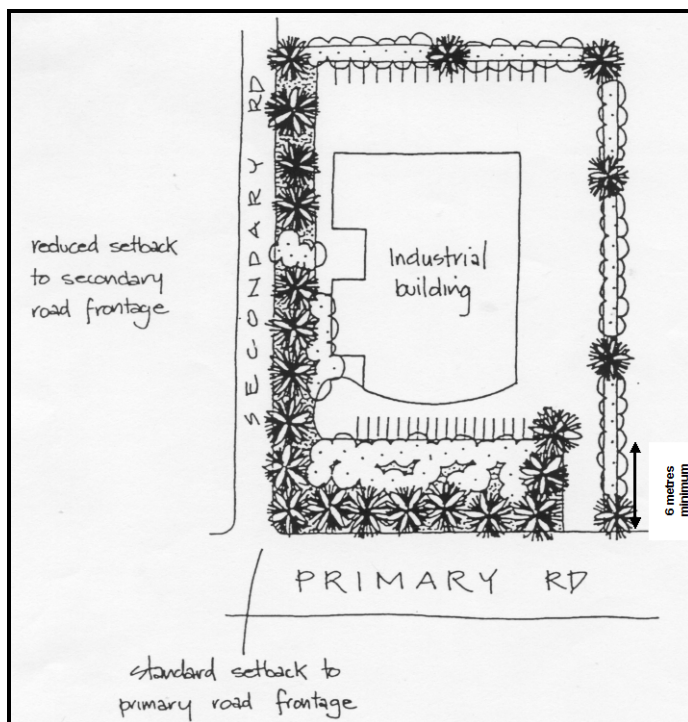 SECONDARY RD
reduced setback
to secondary
road frontage
Industrial
building
6 metres
minimum
PRIMARY RD
standard setback to
primary road frontage